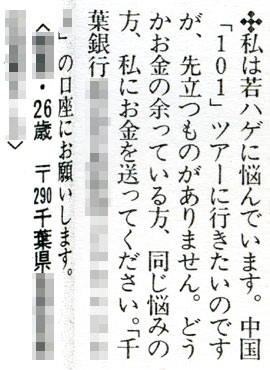 ✤私は若ハゲに悩んでいます。中国
「101」ツアーに行きたいのです
が、先立つものがありません。どう
かお金の余っている方、同じ悩みの
方、私にお金を送ってください。「千
葉銀行
」の口座にお願いします。
〈 ・26歳 〒290千葉県
〉